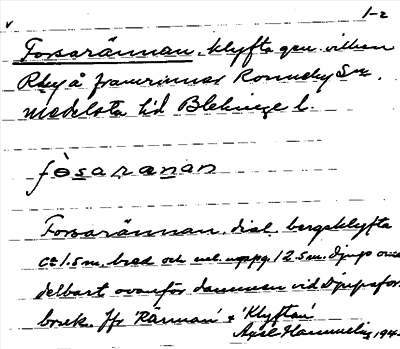 v 1-2
Forsarännan, klyfta gen. vilken
Rbyå framrinner Ronneby Sn,
medelsta hd Blekinge l.
fòsaranan
Forsarännan, dial. bergsklyfta
ca 1.5 m. bred och enl. uppg. 12.5 m. djup ome
delbart ovanför dammen vid Djupafors
bruk. Jfr 'Rännan' o 'Klyftan'
Axel 194